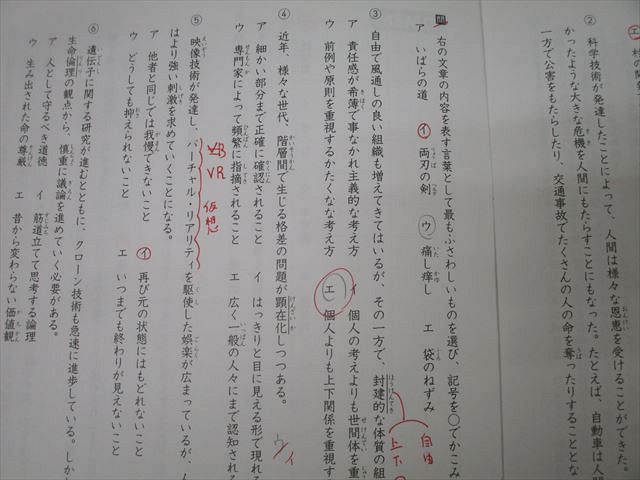 エ 村の
② 科学技術が発達したことによって、人間は様々な恩恵を受けることができた。
かったような大きな危機を人間にもたらすことにもなった。たとえば、自動車は人間
一方で公害をもたらしたり、交通事故でたくさんの人の命を奪ったりすることとな
問 右の文章の内容を表す言葉として最もふさわしいものを選び、記号を〇でかこみ
ア いばらの道 イ 両刃の剣 ウ 痛し痒し エ 袋のねずみ
③ 自由で風通しの良い組織も増えてきてはいるが、その一方で、封建的な体質の組
ア 責任感が希薄で事なかれ主義的な考え方 イ 個人の考えよりも世間体を重
ウ 前例や原則を重視するかたくなな考え方 エ 個人よりも上下関係を重視す
自由
上下
④ 近年、様々な世代、階層間で生じる格差の問題が顕在化しつつある。
ア 細かい部分まで正確に確認されること イ はっきりと目に見える形で現れる
ウ 専門家によって頻繁に指摘されること エ 広く一般の人々にまで認知される
ウ/イ
VR
仮想
⑤ 映像技術が発達し、バーチャル・リアリティを駆使した娯楽が広まっているが、人
はより強い刺激を求めていくことになる。
ア 他者と同じでは我慢できないこと イ 再び元の状態にはもどれないこと
ウ どうしても抑えられないこと エ いつまでも終わりが見えないこと
⑥ 遺伝子に関する研究が進むとともに、クローン技術も急速に進歩している。しか
生命倫理の観点から、慎重に議論を進めていく必要がある。
ア 人として守るべき道徳 イ 筋道立てて思考する論理
ウ 生み出された命の尊厳 エ 昔から変わらない価値観